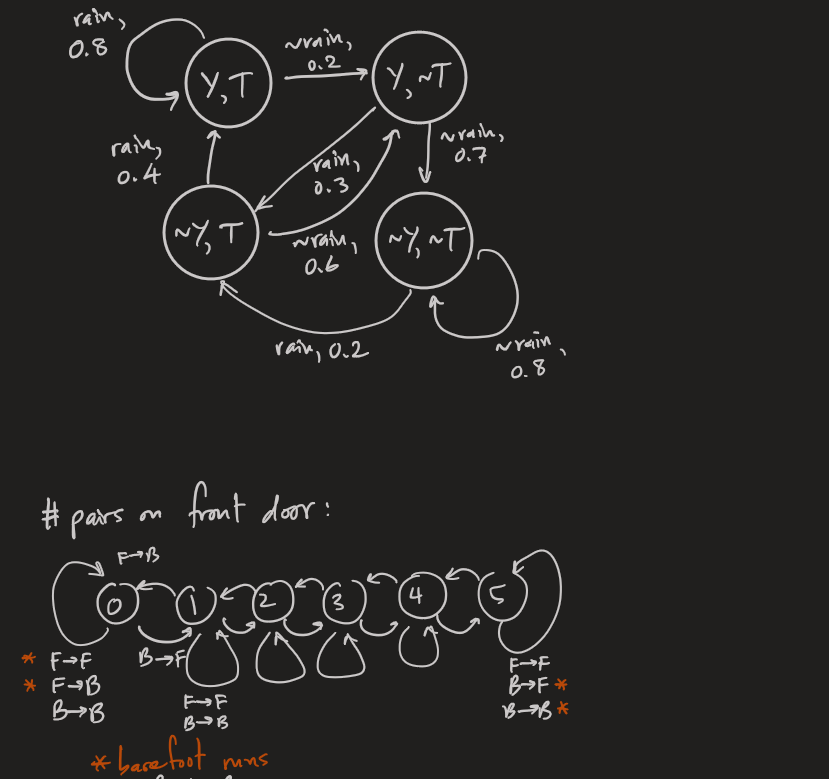 rain,
0.8
Y,T
~rain,
0.2
Y,~T
rain,
0.4
rain,
0.3
~rain,
0.7
~Y,T
~rain,
0.6
~Y,~T
rain, 0.2
~rain,
0.8
# pairs on front door:
F→B
0 1 2 3 4 5
* F→F
* F→B
B→B
B→F
F→F
B→B
F→F
B→F *
B→B *
* barefoot runs